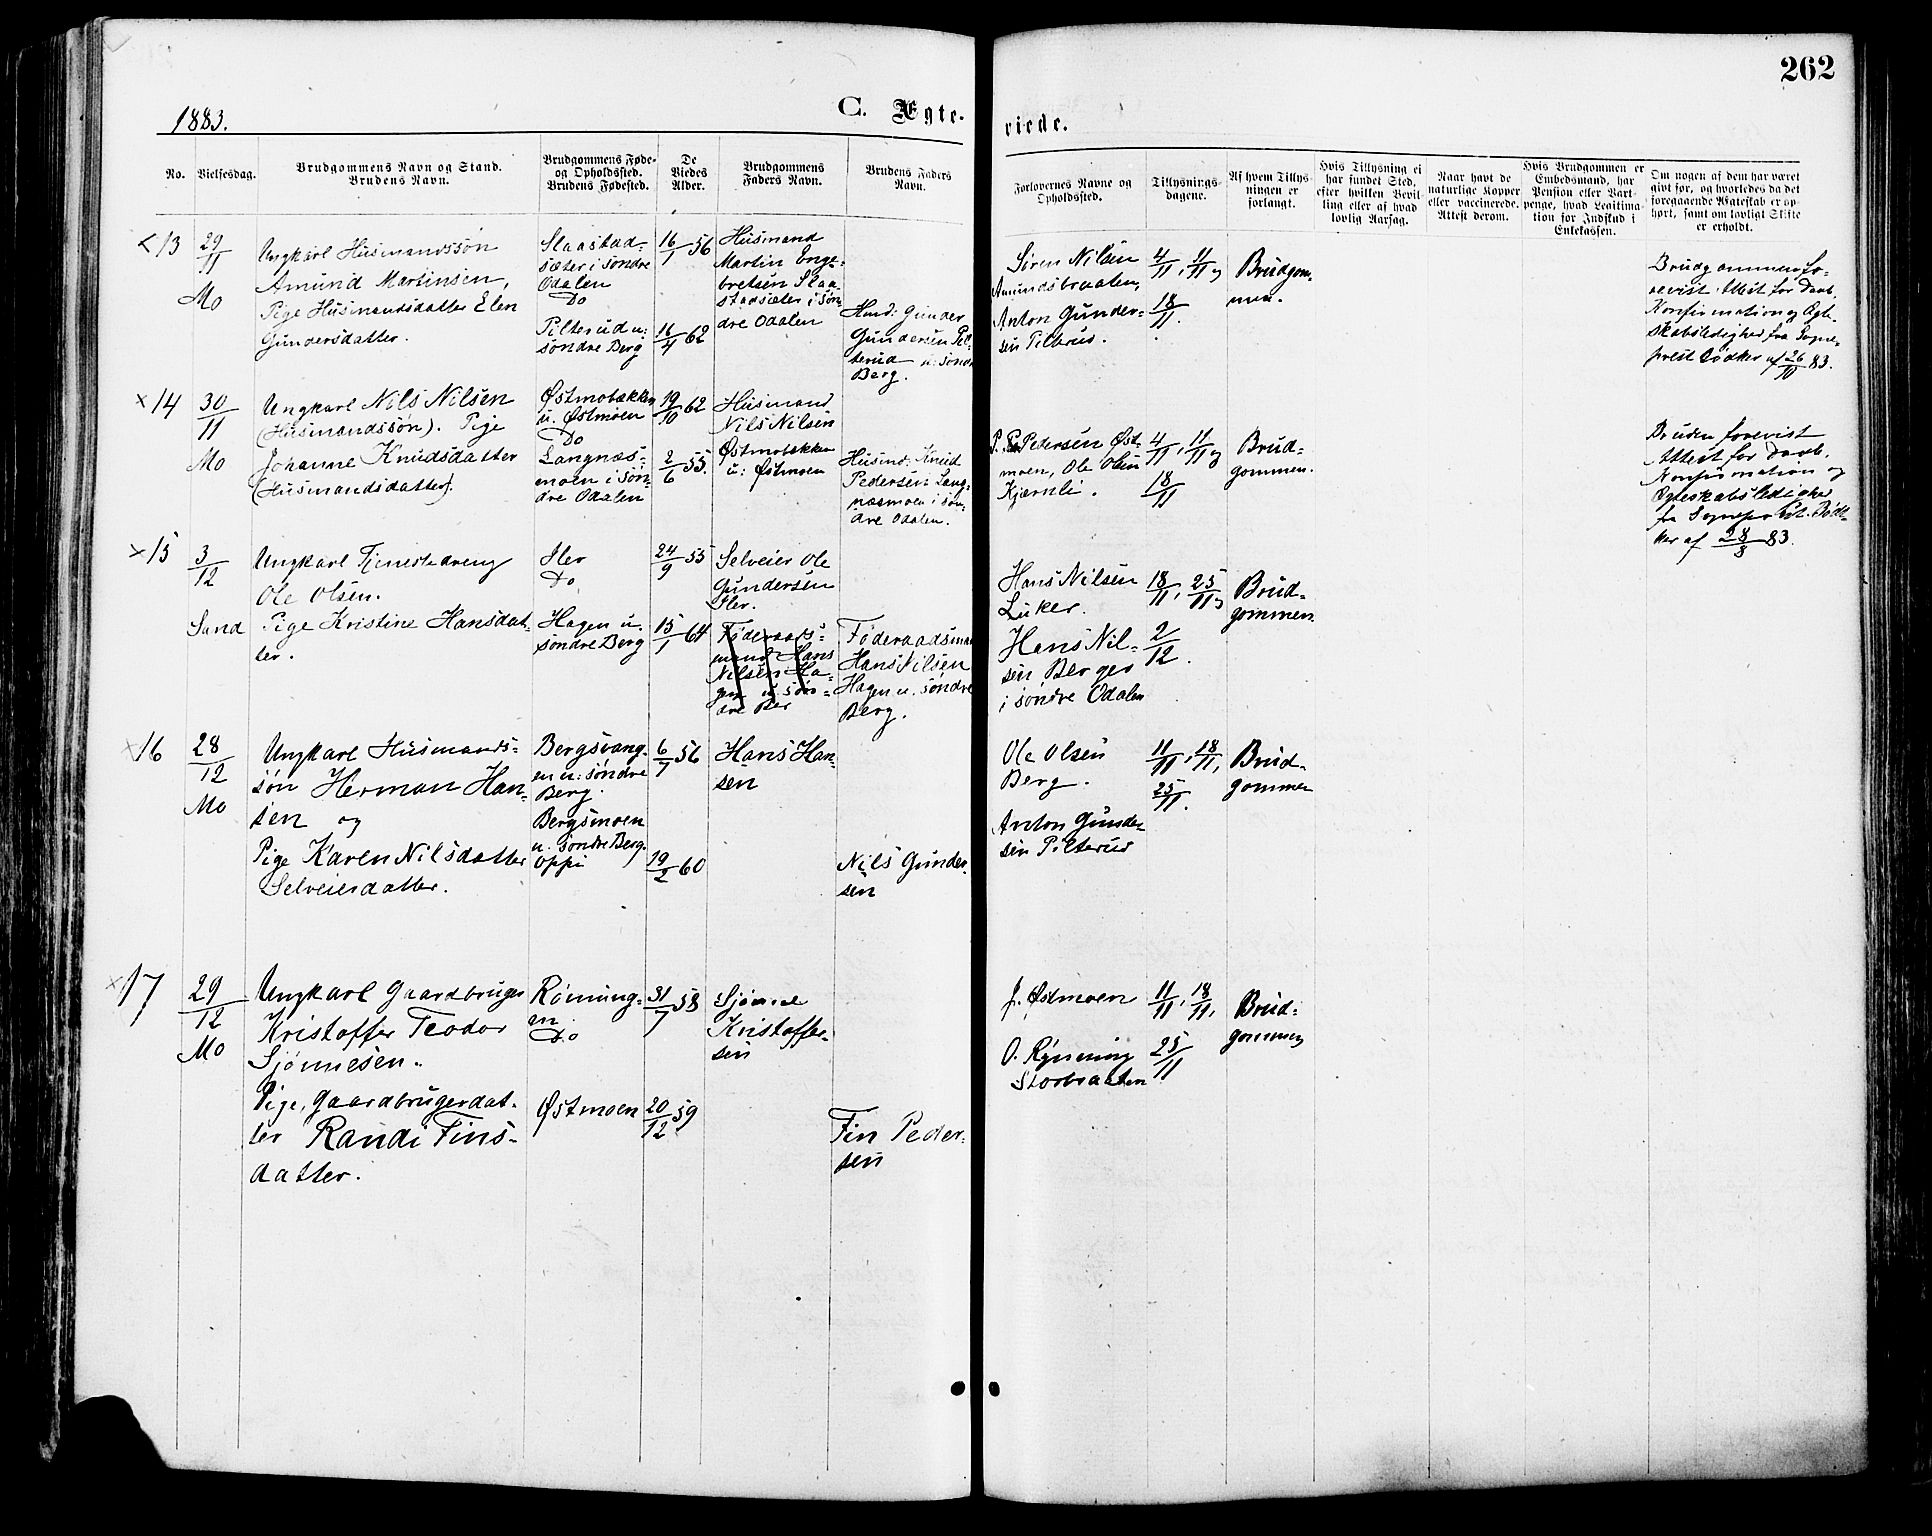 262
1883.
C. Ægte-
viede.
No.
Vielsesdag.
Brudgommens Navn og Stand.
Brudens Navn.
Brudgommens Føde-
og Opholdssted.
Brudens Fødested.
De
Viedes
Alder.
Brudgommens
Faders Navn.
Brudens Faders
Navn.
Forlovernes Navne og
Opholdssted.
Tillysnings-
dagene.
Af hvem Tillys-
ningen er
forlangt.
Hvis Tillysning ei
har fundet Sted,
efter hvilken Bevil-
ling eller af hvad
lovlig Aarsag.
Naar havt de
naturlige Kopper
eller vaccinerede.
Attest derom.
Hvis Brudgommen er
Embedsmand, har
Pension eller Vart-
penge, hvad Legitima-
tion for Indskud i
Enkekassen.
Om nogen af dem har været
givt før, og hvorledes da det
foregaaende Ægteskab er op-
hørt, samt om lovligt Skifte
er erholdt.
×13
29/11
Mo
Ungkarl Husmandssøn
Amund Martinsen,
Pige Husmandsdatter Elen
Gundersdatter.
Slaastad-
sæter i Søndre
Odalen
Do
Pilterud u:
søndre Berg
16/1 56
16/4 62
Husmand
Martin Enge-
bretsen Slaa-
stadsæter i Søn-
dre Odalen
Husd: Gunder
Gundersen Pil-
terud u: søndre
Berg.
Søren Nilsen
Amundsbraaten,
Anton Gunder-
sen Pilterud.
4/11, 11/11 og
18/11.
Brudgom-
men.
Brudgommen fo-
revist Attest for Daab,
Konfirmation og Ægte-
skabsledighed fra Sogne-
prest Bødker af 26/10 83.
×14
30/11
Mo
Ungkarl Nils Nilsen
(Husmandssøn). Pige
Johanne Knudsdatter
(Husmandsdatter).
Østmobækken
u. Østmoen
Do
Langnæs-
moen i Søn-
dre Odalen
19/10 62
2/6 55.
Husmand
Nils Nilsen
Østmobækken
u: Østmoen
Husmd: Knud
Pedersen Lang-
næsmoen i Søn-
dre Odalen.
P. Pedersen Øst-
moen, Ole Olsen
Kjærnli.
4/11, 11/11 og
18/11
Brud-
gommen.
Bruden forevist
Attest for Daab,
Konfirmation og
Ægteskabsledighed
fra Sogneprest Bødt-
ker af 28/8 83.
×15
3/12
Sand
Ungkarl Tjenestedreng
Ole Olsen.
Pige Kristine Hansdat-
ter.
Iler
Do
Hagen u.
søndre Berg
24/9 55
15/1 64
Selveier Ole
Gundersen
Iler.
Føderaads-
mand Hans
Nilsen Ha-
gen u. søn-
dre Ber
Føderaadsmand
Hans Nilsen
Hagen u. søndre
Berg.
Hans Nilsen
Luker.
Hans Nil-
sen Berger
i søndre Odalen
18/11, 25/11 og
2/12.
Brud-
gommen
×16
28/12
Mo
Ungkarl Husmands-
søn Herman Han-
sen og
Pige Karen Nilsdatter
Selveierdatter.
Bergsvang-
en u: søndre
Berg.
Bergsmoen
u. søndre Berg.
Oppi
6/7 56
19/2 60
Hans Han-
sen
Nils Gunder-
sen
Ole Olsen
Berg.
Anton Gunder-
sen Pilterud
11/11, 18/11,
25/11.
Brud-
gommen
×17
29/12
Mo
Ungkarl Gaardbruger
Kristoffer Teodor
Sjønnesen.
Pige, Gaardbrugerdat-
ter Randi Fins-
datter.
Rønning-
en
Do
Østmoen
31/7 58
20/12 59
Sjønne
Kristoffer-
sen
Fin Peder-
sen
J. Østmoen
O. Rynning
Storbraaten
11/11, 18/11,
25/11
Brud-
gommen